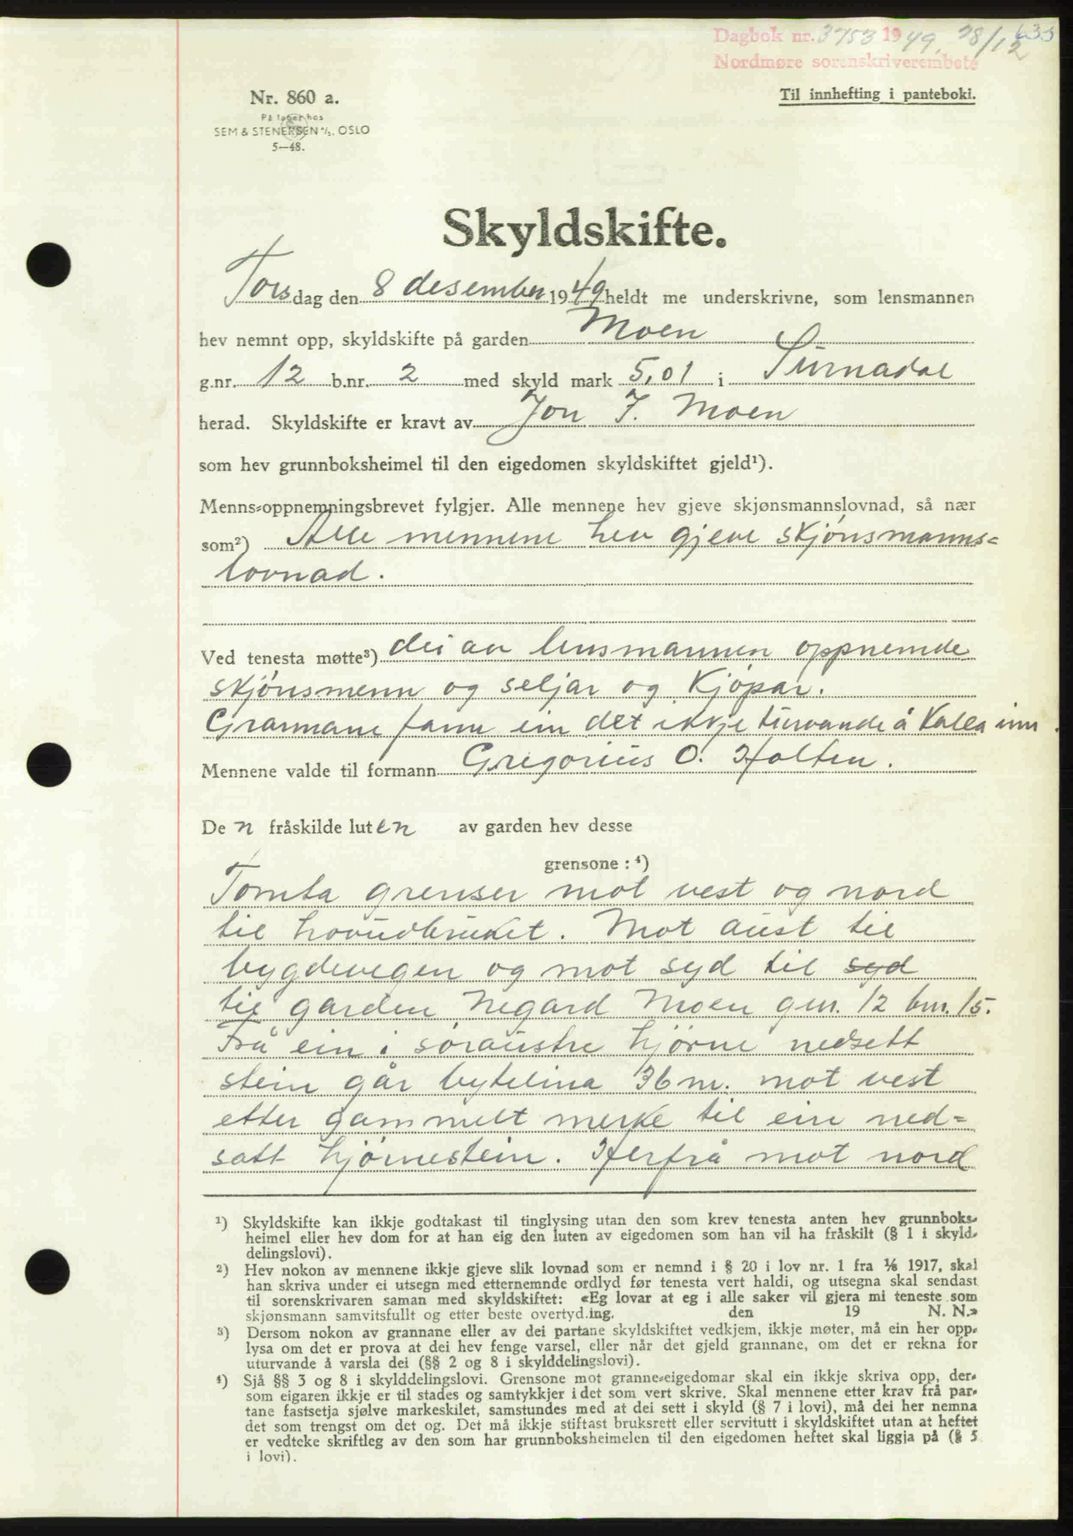 Dagbok nr. 3753 1949, 28/12 633
Nordmøre sorenskriverembete
Nr. 860 a.
Til innhefting i panteboki.
På lager hos
SEM & STENERSEN A/S, OSLO
5—48.
Skyldskifte.
Torsdag den 8 desember 1949 heldt me underskrivne, som lensmannen
hev nemnt opp, skyldskifte på garden Moen
g.nr. 12 b.nr. 2 med skyld mark 5,01 i Surnadal
herad. Skyldskifte er kravt av Jon J. Moen
som hev grunnboksheimel til den eigedomen skyldskiftet gjeld¹).
Menns-oppnemningsbrevet fylgjer. Alle mennene hev gjeve skjønsmannslovnad, så nær
som²) Alle mennene hev gjeve skjønsmanns=
lovnad.
Ved tenesta møtte³) dei av lensmannen oppnemde
skjønsmenn og seljar og kjøpar.
Grannane fann ein det ikkje turvande å kalla inn.
Mennene valde til formann Gregorius O. Holten.
De n fråskilde luten av garden hev desse
grensone : ⁴)
Tomta grenser mot vest og nord
til hovudbruket. Mot aust til
bygdevegen og mot syd til syd
til garden Negard Moen gnr. 12 bnr. 15.
Frå ein i søraustre hjørne nedsett
stein går bytelina 36 m. mot vest
etter gammelt merke til ein ned=
satt hjørnestein. Herfrå mot nord
¹) Skyldskifte kan ikkje godtakast til tinglysing utan den som krev tenesta anten hev grunnboks-
heimel eller hev dom for at han eig den luten av eigedomen som han vil ha fråskilt (§ 1 i skyld-
delingslovi).
²) Hev nokon av mennene ikkje gjeve slik lovnad som er nemnd i § 20 i lov nr. 1 fra 1/6 1917, skal
han skriva under ei utsegn med etternemnde ordlyd før tenesta vert haldi, og utsegna skal sendast
til sorenskrivaren saman med skyldskiftet: «Eg lovar at eg i alle saker vil gjera mi teneste som
skjønsmann samvitsfullt og etter beste overtyding. den 19 N. N.»
³) Dersom nokon av grannane eller av dei partane skyldskiftet vedkjem, ikkje møter, må ein her opp-
lysa om det er prova at dei hev fenge varsel, eller når det gjeld grannane, om det er rekna for
uturvande å varsla dei (§§ 2 og 8 i skylddelingslovi).
⁴) Sjå §§ 3 og 8 i skylddelingslovi. Grensone mot granne-eigedomar skal ein ikkje skriva opp, der-
som eigaren ikkje er til stades og samtykkjer i det som vert skrive. Skal mennene etter krav frå par-
tane fastsetja sjølve markeskilet, samstundes med at dei sett i skyld (§ 7 i lovi), må dei her nemna
det som trengst om det og. Det må ikkje stiftast bruksrett eller servitutt i skyldskiftet utan at heftet
er vedteke skriftleg av den som har grunnboksheimelen til den eigedomen heftet skal liggja på (§ 5
i lovi).